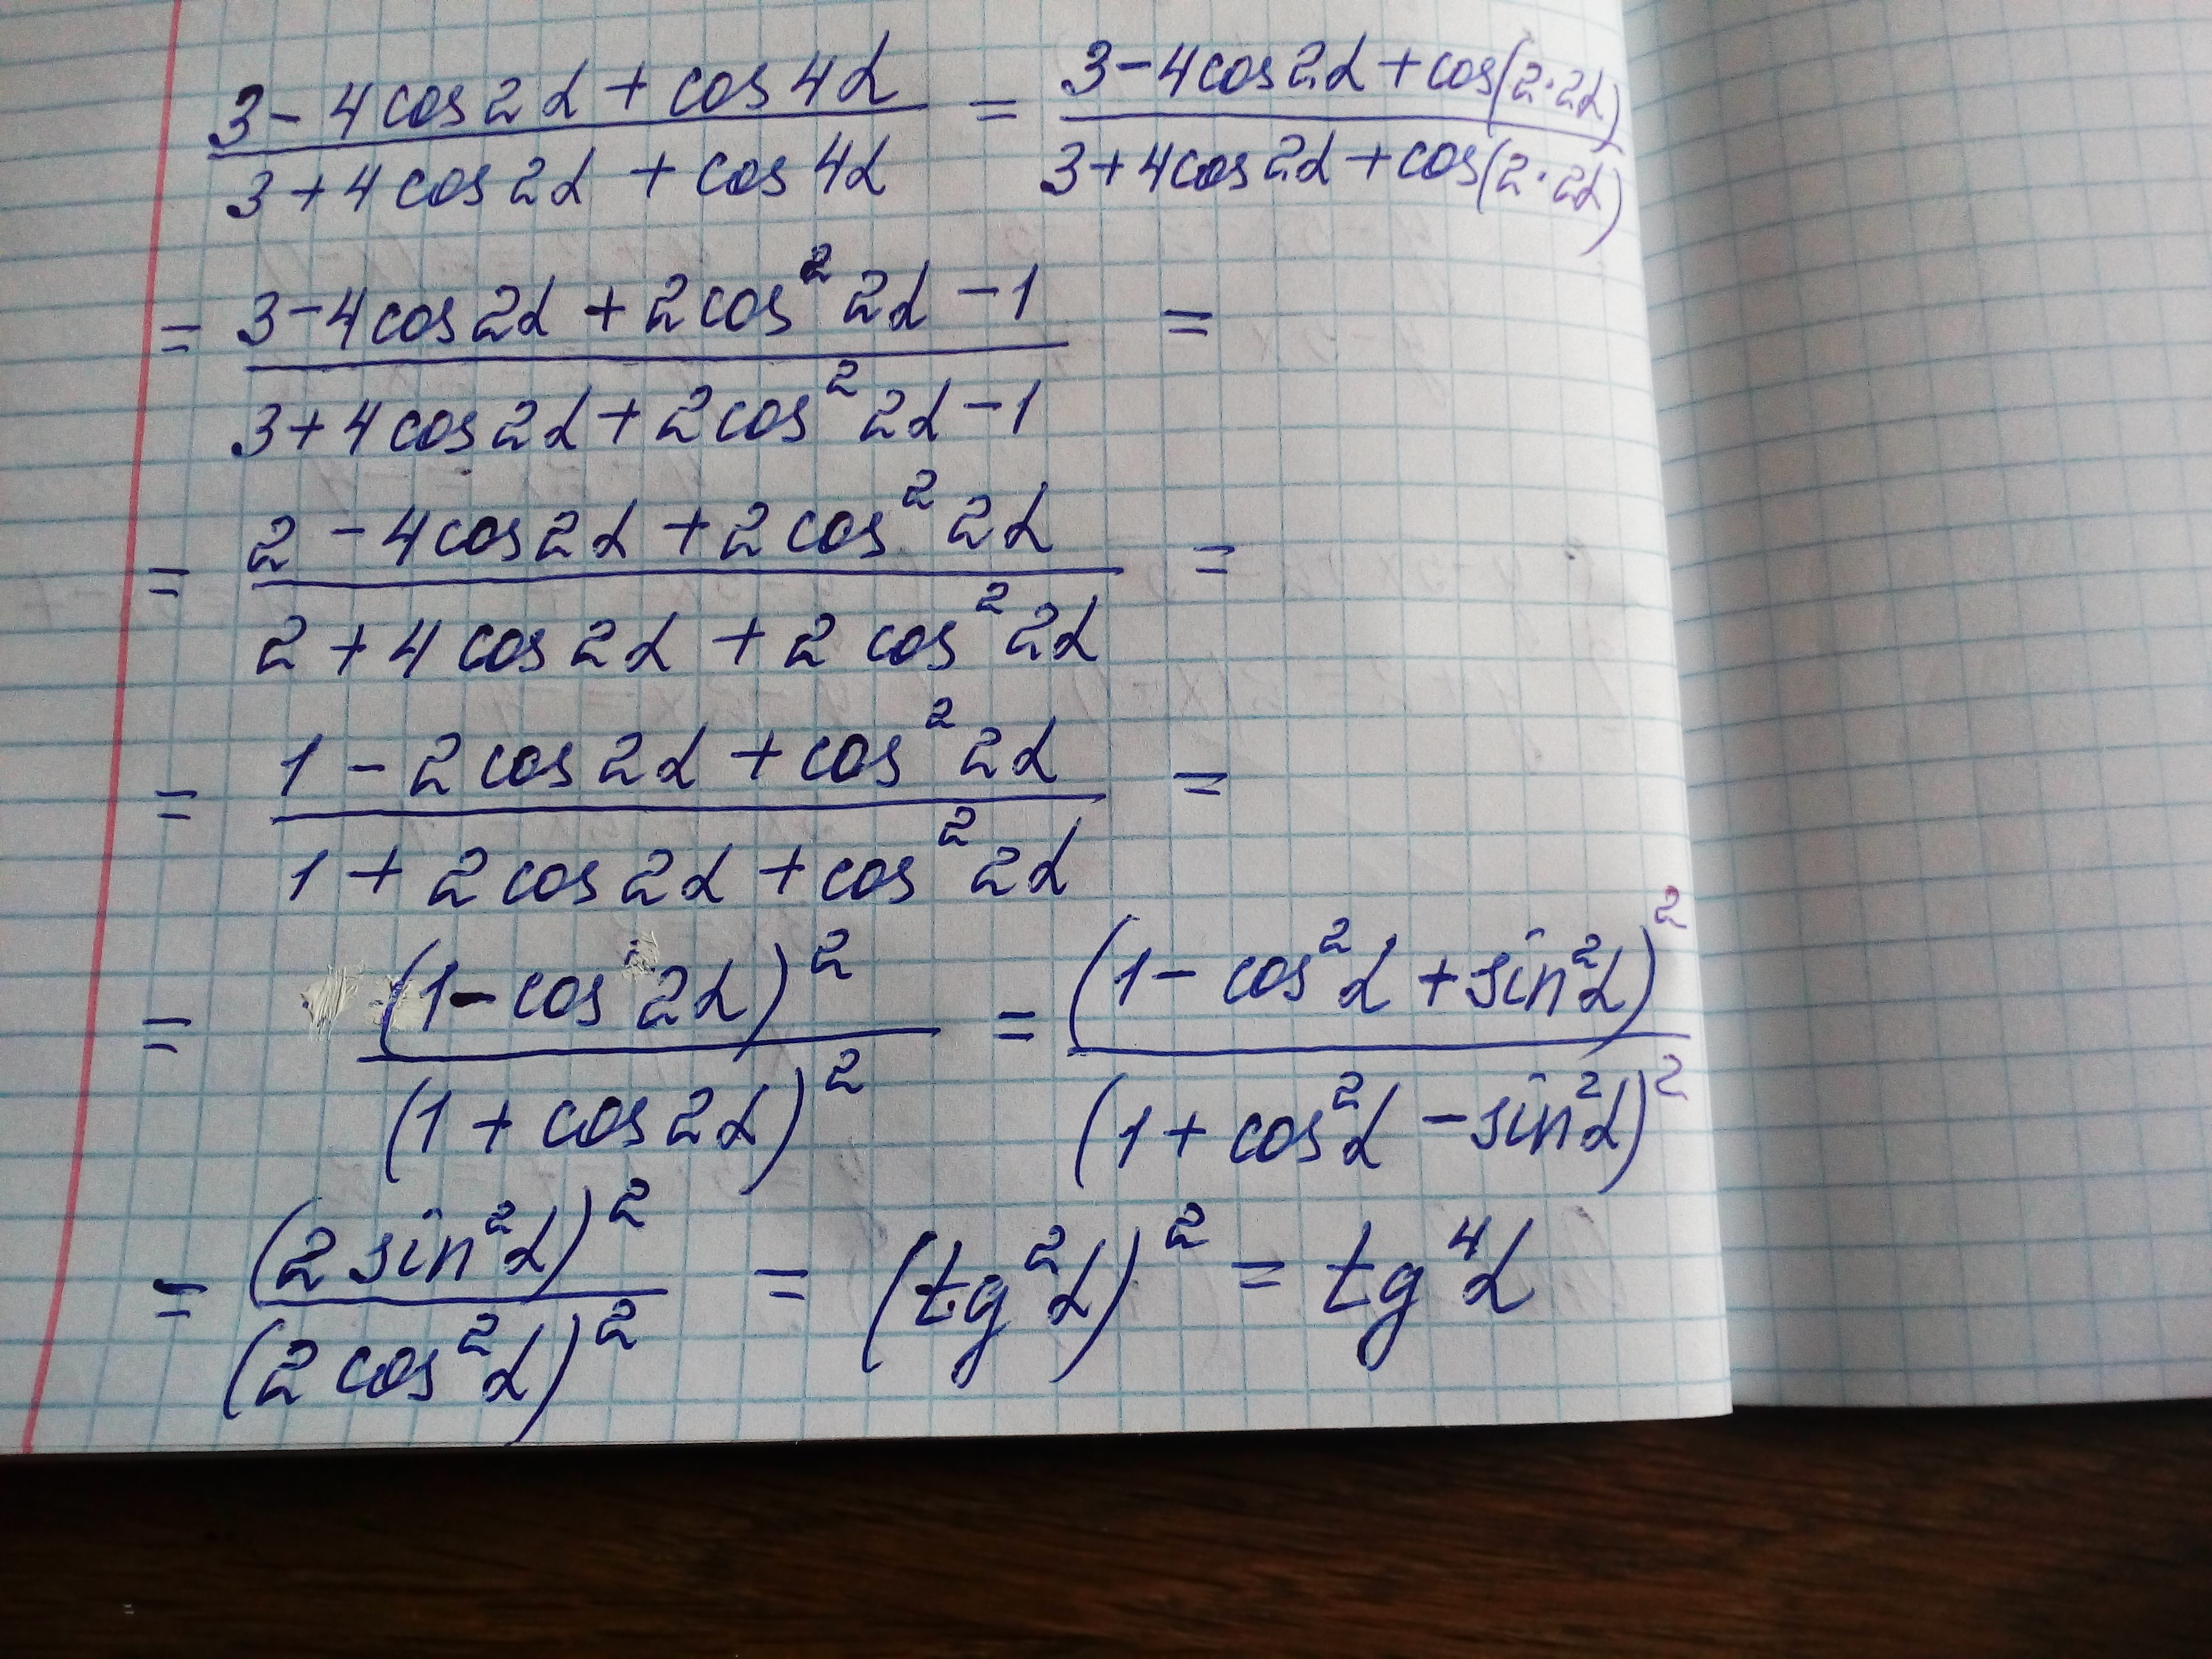 (3 - 4cos2α + cos4α)/(3 + 4cos2α + cos4α) = (3 - 4cos2α + cos(2·2α))/(3 + 4cos2α + cos(2·2α))
= (3 - 4cos2α + 2cos²2α - 1)/(3 + 4cos2α + 2cos²2α - 1) =
= (2 - 4cos2α + 2cos²2α)/(2 + 4cos2α + 2cos²2α) =
= (1 - 2cos2α + cos²2α)/(1 + 2cos2α + cos²2α) =
= (1 - cos2α)²/(1 + cos2α)² = (1 - cos²α + sin²α)²/(1 + cos²α - sin²α)²
= (2sin²α)²/(2cos²α)² = (tg²α)² = tg⁴α